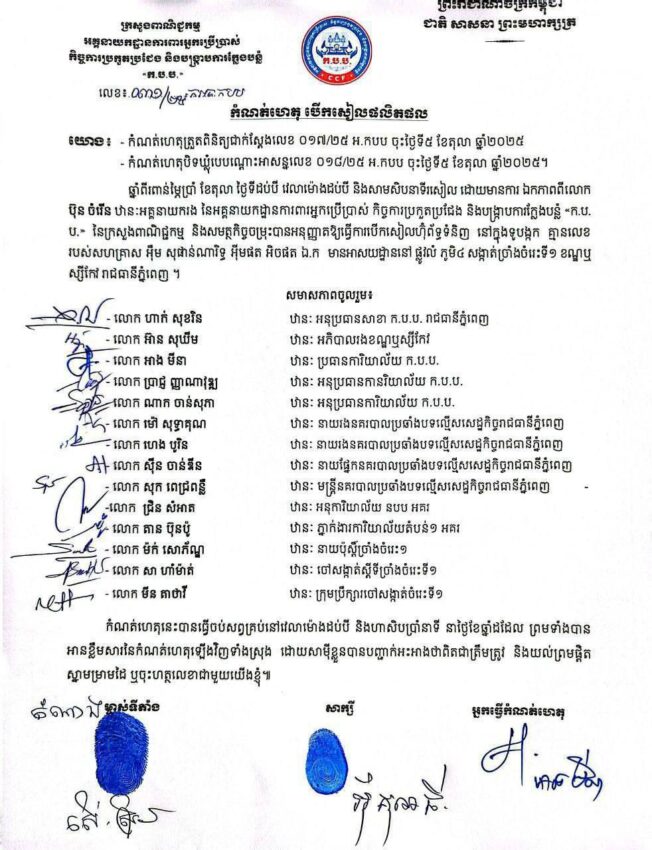 ក្រសួងពាណិជ្ជកម្ម
អគ្គនាយកដ្ឋានការពារអ្នកប្រើប្រាស់
កិច្ចការប្រកួតប្រជែង និងបង្ក្រាបការក្លែងបន្លំ
"ក.ប.ប."
លេខ៖
ក.ប.ប.
CCF
ព្រះរាជាណាចក្រកម្ពុជា
ជាតិ សាសនា ព្រះមហាក្សត្រ
កំណត់ហេតុ បើកសៀលផលិតផល
យោង៖ - កំណត់ហេតុត្រួតពិនិត្យជាក់ស្តែងលេខ ០១៧/២៥ អ.កបប ចុះថ្ងៃទី៥ ខែតុលា ឆ្នាំ២០២៥
- កំណត់ហេតុបិទឃ្លុំបេបណ្តោះអាសន្នលេខ ០១៨/២៥ អ.កបប ចុះថ្ងៃទី៥ ខែតុលា ឆ្នាំ២០២៥។
ឆ្នាំពីរពាន់ម្ភៃប្រាំ ខែតុលា ថ្ងៃទីដប់បី វេលាម៉ោងដប់បី និងសាមសិបនាទីរសៀល ដោយមានការ ឯកភាពពីលោក
ប៊ុន ចំរើន ឋានៈអគ្គនាយករង នៃអគ្គនាយកដ្ឋានការពារអ្នកប្រើប្រាស់ កិច្ចការប្រកួតប្រជែង និងបង្ក្រាបការក្លែងបន្លំ «ក.ប.
ប.» នៃក្រសួងពាណិជ្ជកម្ម និងសមត្ថកិច្ចចម្រុះបានអនុញ្ញាតឱ្យធ្វើការបើកសៀលហ៊ុំព័ទ្ធទំនិញ នៅក្នុងទូបង្កក គ្មានលេខ
របស់សហគ្រាស អ៊ឹម សុផាន់ណារិទ្ធ អ៊ីមផត អិចផត ឯ.ក មានអាសយដ្ឋាននៅ ផ្លូវលំ ភូមិ៤ សង្កាត់ច្រាំងចំរេះទី១ ខណ្ឌឬ
ស្សីកែវ រាជធានីភ្នំពេញ ។
សមាសភាពចូលរួម៖
- លោក ហាក់ សុខរិន ឋានៈ អនុប្រធានសាខា ក.ប.ប. រាជធានីភ្នំពេញ
- លោក អ៊ាន សុឃីម ឋានៈ អភិបាលរងខណ្ឌឬស្សីកែវ
- លោក អាង មីនា ឋានៈ ប្រធានការិយាល័យ ក.ប.ប.
- លោក ប្រាជ្ញ ញាណវុឌ្ឍ ឋានៈ អនុប្រធានការិយាល័យ ក.ប.ប.
- លោក ណាក ចាន់សុភា ឋានៈ អនុប្រធានការិយាល័យ ក.ប.ប.
- លោក ម៉ៅ សុទ្ធាគុណ ឋានៈ នាយរងនគរបាលប្រឆាំងបទល្មើសសេដ្ឋកិច្ចរាជធានីភ្នំពេញ
- លោក ហេង បូរិន ឋានៈ នាយរងនគរបាលប្រឆាំងបទល្មើសសេដ្ឋកិច្ចរាជធានីភ្នំពេញ
- លោក ស៊ីន ចាន់ឌីន ឋានៈ នាយផ្នែកនគរបាលប្រឆាំងបទល្មើសសេដ្ឋកិច្ចរាជធានីភ្នំពេញ
- លោក សុក ពេជ្រពន្លឺ ឋានៈ មន្ត្រីនគរបាលប្រឆាំងបទល្មើសសេដ្ឋកិច្ចរាជធានីភ្នំពេញ
- លោក ជ្រិន សំអាត ឋានៈ អនុការិយាល័យ នបប អគរ
- លោក តាន ប៊ុនប៉ូ ឋានៈ ភ្នាក់ងារការិយាល័យតំបន់១ អគរ
- លោក ម៉ក់ សោភ័ណ្ឌ ឋានៈ នាយប៉ុស្តិ៍ច្រាំងចំរេះ១
- លោក សា ហាំម៉ាត់ ឋានៈ ចៅសង្កាត់ស្តីទីច្រាំងចំរេះទី១
- លោក មីន តាថាវី ឋានៈ ក្រុមប្រឹក្សាចៅសង្កាត់ចំរេះទី១
កំណត់ហេតុនេះបានធ្វើចប់សព្វគ្រប់នៅវេលាម៉ោងដប់បី និងហាសិបប្រាំនាទី នាថ្ងៃខែឆ្នាំដដែល ព្រមទាំងបាន
អានខ្លឹមសារនៃកំណត់ហេតុឡើងវិញទាំងស្រុង ដោយសាមុីខ្លួនបានបញ្ជាក់អះអាងថាពិតជាត្រឹមត្រូវ និងយល់ព្រមផ្តិត
ស្នាមម្រាមដៃ ឬចុះហត្ថលេខាជាមួយយើងខ្ញុំ៕
តំណាង ម្ចាស់ទីតាំង សាក្សី អ្នកធ្វើកំណត់ហេតុ